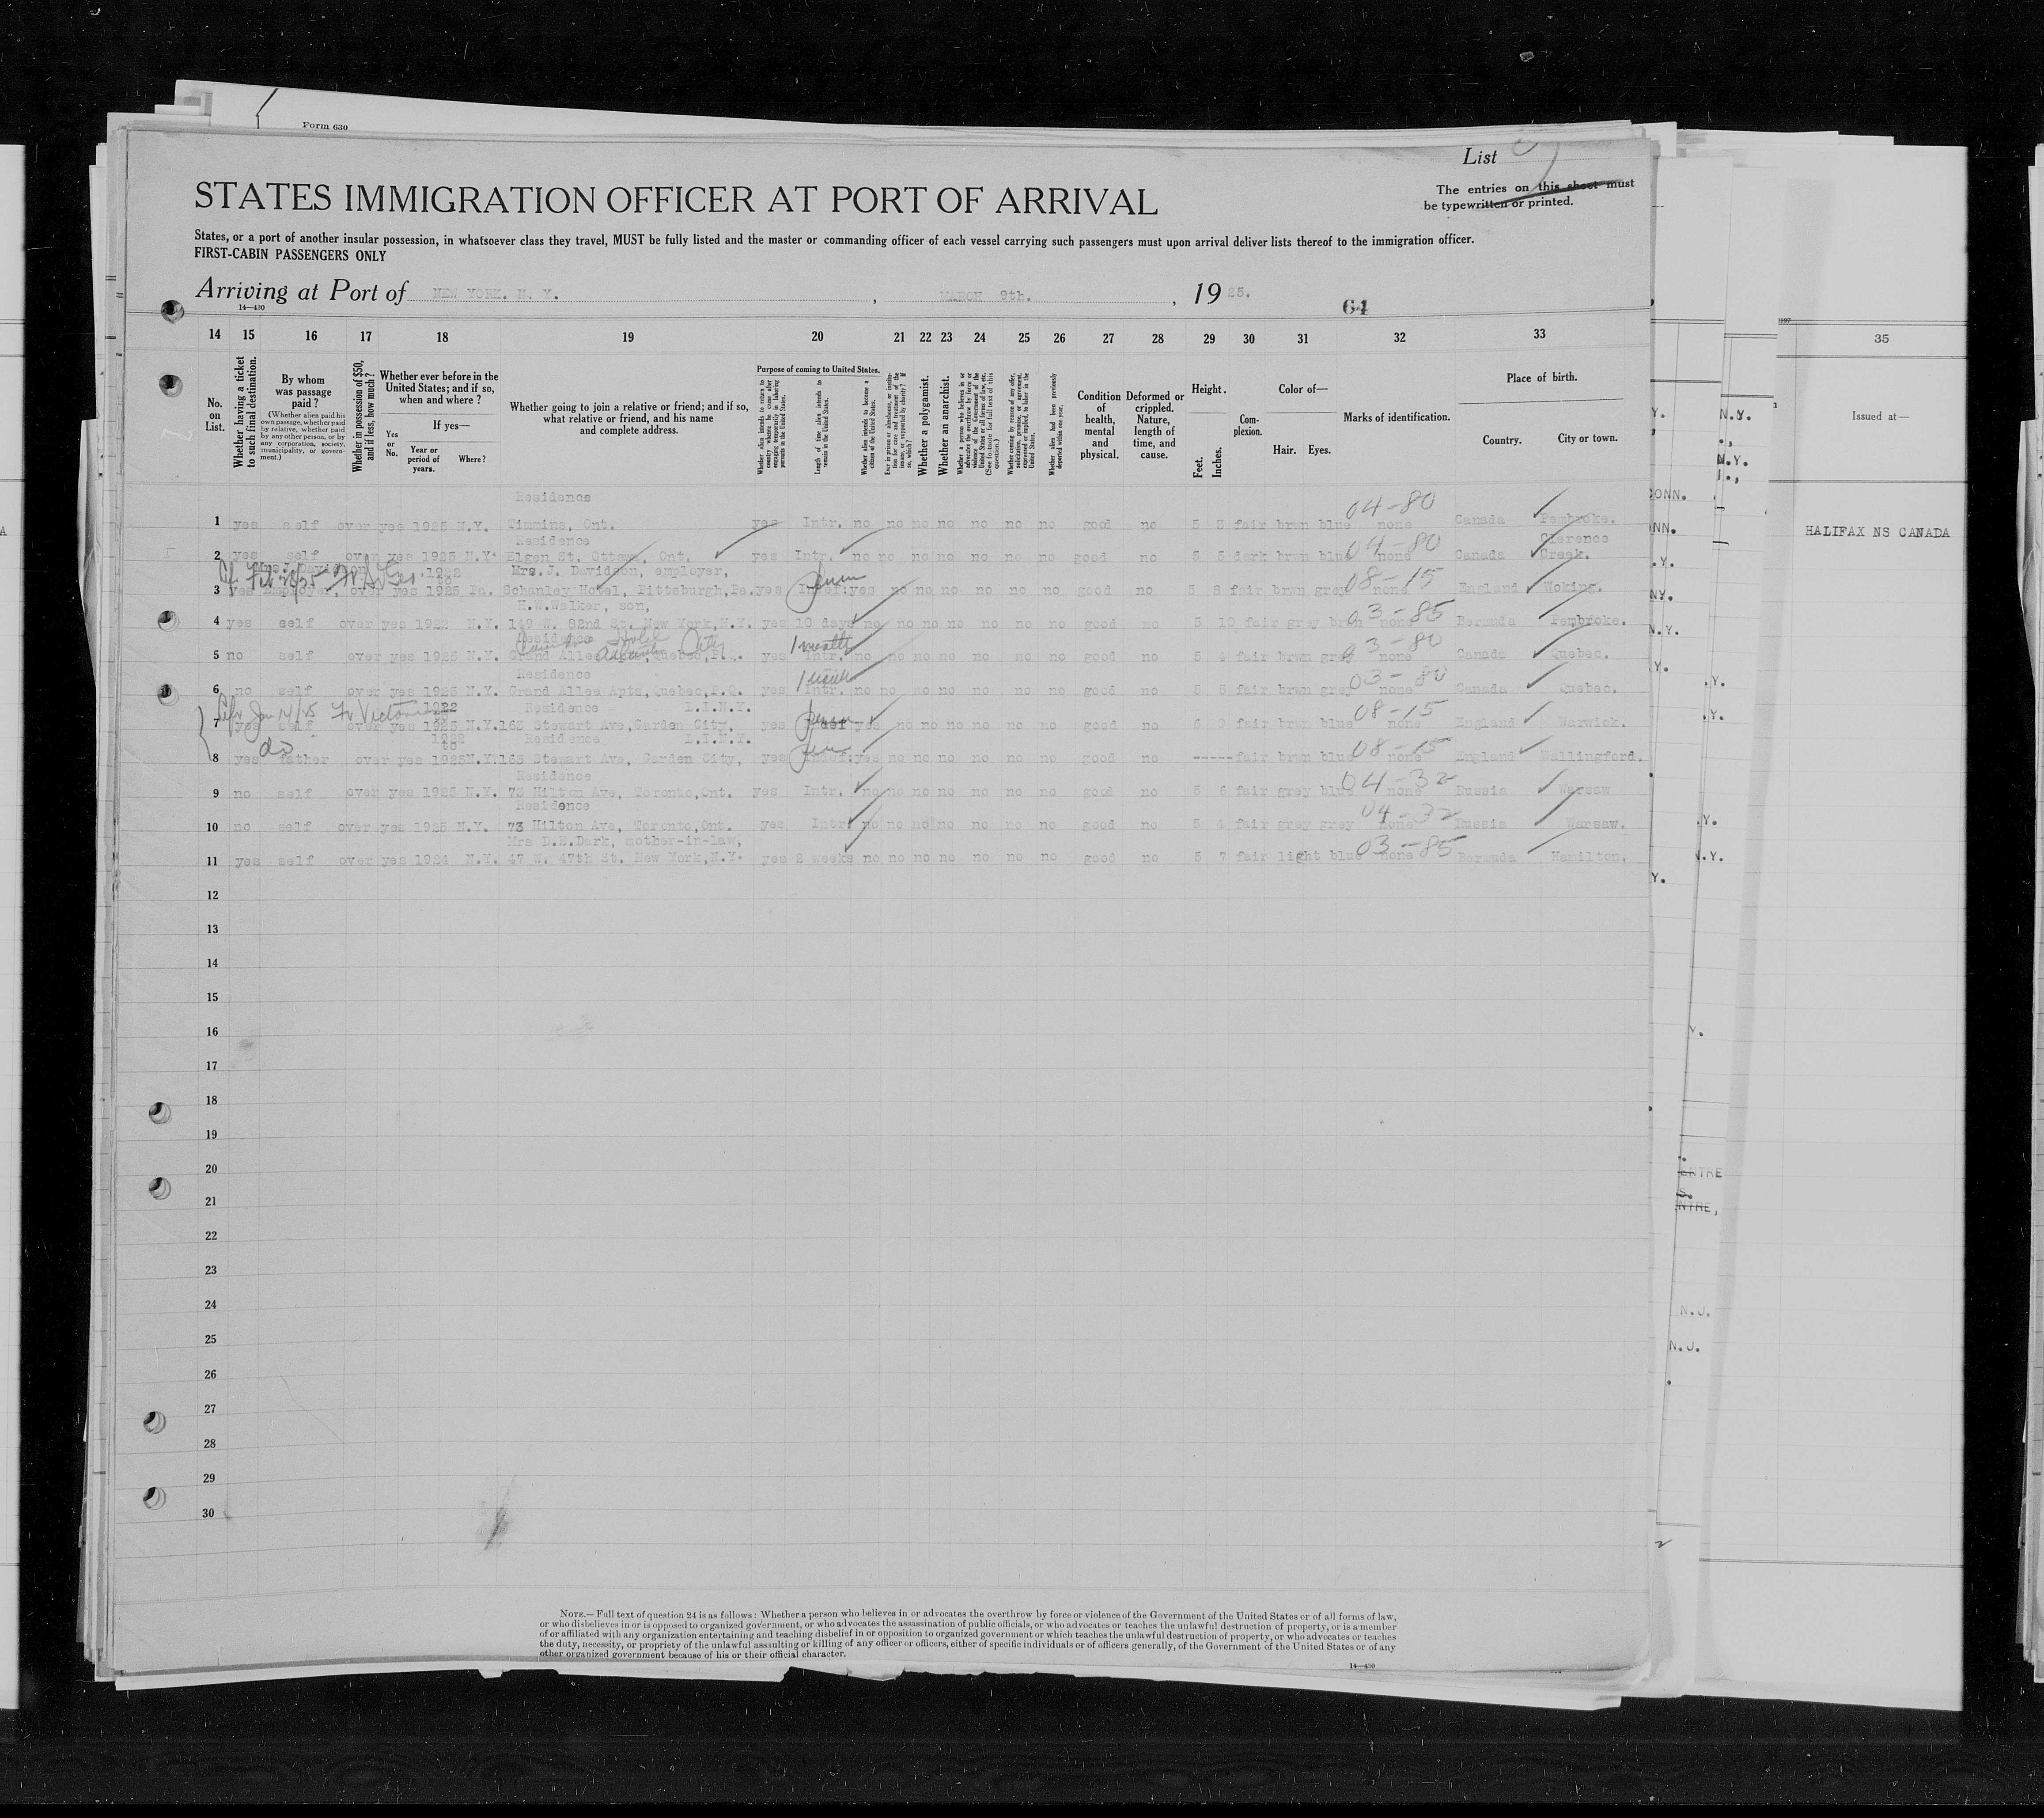 Form 630
List
The entries on this sheet must
be typewritten or printed.
STATES IMMIGRATION OFFICER AT PORT OF ARRIVAL
States, or a port of another insular possession, in whatsoever class they travel, MUST be fully listed and the master or commanding officer of each vessel carrying such passengers must upon arrival deliver lists thereof to the immigration officer.
FIRST-CABIN PASSENGERS ONLY
Arriving at Port of NEW YORK. N. Y. , MARCH 9th. , 1925.
14—430
64
14 15 16 17 18 19 20 21 22 23 24 25 26 27 28 29 30 31 32 33
35
No. on List.
Whether having a ticket to such final destination.
By whom was passage paid?
(Whether alien paid his own passage, whether paid by relative, whether paid by any other person, or by any corporation, society, municipality, or government.)
Whether in possession of $50, and if less, how much?
Whether ever before in the United States; and if so, when and where?
Yes or No.
If yes—
Year or period of years.
Where?
Whether going to join a relative or friend; and if so, what relative or friend, and his name and complete address.
Purpose of coming to United States.
Length of time alien intends to remain in the United States.
Whether alien intends to become a citizen of the United States.
Whether a polygamist.
Whether an anarchist.
Condition of health, mental and physical.
Deformed or crippled. Nature, length of time, and cause.
Height.
Feet. Inches.
Complexion.
Color of—
Hair. Eyes.
Marks of identification.
Place of birth.
Country. City or town.
Issued at—
HALIFAX NS CANADA
Residence
04-80
1 yes self over yes 1925 N.Y. Timmins, Ont. yes Intr. no no no no no no no good no 5 3 fair brwn blue none Canada Pembroke.
Residence
04-80
Clarence
2 yes self over yes 1925 N.Y. Elgen St. Ottawa, Ont. yes Intr. no no no no no no no good no 5 5 dark brwn blue Canada Creek.
1922 Mrs. J. Davidson, employer,
08-15
3 yes Employer, over yes 1925 Pa. Schenley Hotel, Pittsburgh, Pa. yes Indef. yes no no no no no no good no 5 8 fair brwn grey none England Woking.
H.W.Walker, son,
03-85
4 yes self over yes 1922 N.Y. 149 W. 82nd St. New York, N.Y. yes 10 days no no no no no no no good no 5 10 fair gray brn none Bermuda Pembroke.
Residence
1 month
03-80
5 no self over yes 1925 N.Y. Grand Allee Quebec, P.Q. yes Intr. no no no no no no no good no 5 4 fair brwn grey none Canada Quebec.
Residence
1 month
03-80
6 no self over yes 1925 N.Y. Grand Allee Apts, Quebec, P.Q. yes Intr. no no no no no no no good no 5 5 fair brwn grey none Canada Quebec.
1922 Residence L.I.N.Y.
08-15
7 yes self over yes 1925 N.Y. 163 Stewart Ave, Garden City, yes Indef. yes no no no no no no good no 6 0 fair brwn blue none England Warwick.
do
1922 to Residence L.I.N.Y.
08-15
8 yes father over yes 1925 N.Y. 163 Stewart Ave, Garden City, yes Indef. yes no no no no no no good no ----- fair brwn blue none England Wallingford.
Residence
04-32
9 no self over yes 1925 N.Y. 73 Hilton Ave, Toronto, Ont. yes Intr. no no no no no no no good no 5 6 fair grey blue none Russia Warsaw
Residence
04-32
10 no self over yes 1925 N.Y. 73 Hilton Ave, Toronto, Ont. yes Intr. no no no no no no no good no 5 4 fair grey grey none Russia Warsaw.
Mrs D.E.Dark, mother-in-law,
03-85
11 yes self over yes 1924 N.Y. 47 W. 47th St. New York, N.Y. yes 2 weeks no no no no no no no good no 5 7 fair light blue none Bermuda Hamilton.
12
13
14
15
16
17
18
19
20
21
22
23
24
25
26
27
28
29
30
NOTE.—Full text of question 24 is as follows: Whether a person who believes in or advocates the overthrow by force or violence of the Government of the United States or of all forms of law,
or who disbelieves in or is opposed to organized government, or who advocates the assassination of public officials, or who advocates or teaches the unlawful destruction of property, or is a member
of or affiliated with any organization entertaining and teaching disbelief in or opposition to organized government or which teaches the unlawful destruction of property, or who advocates or teaches
the duty, necessity, or propriety of the unlawful assaulting or killing of any officer or officers, either of specific individuals or of officers generally, of the Government of the United States or of any
other organized government because of his or their official character.
14—430